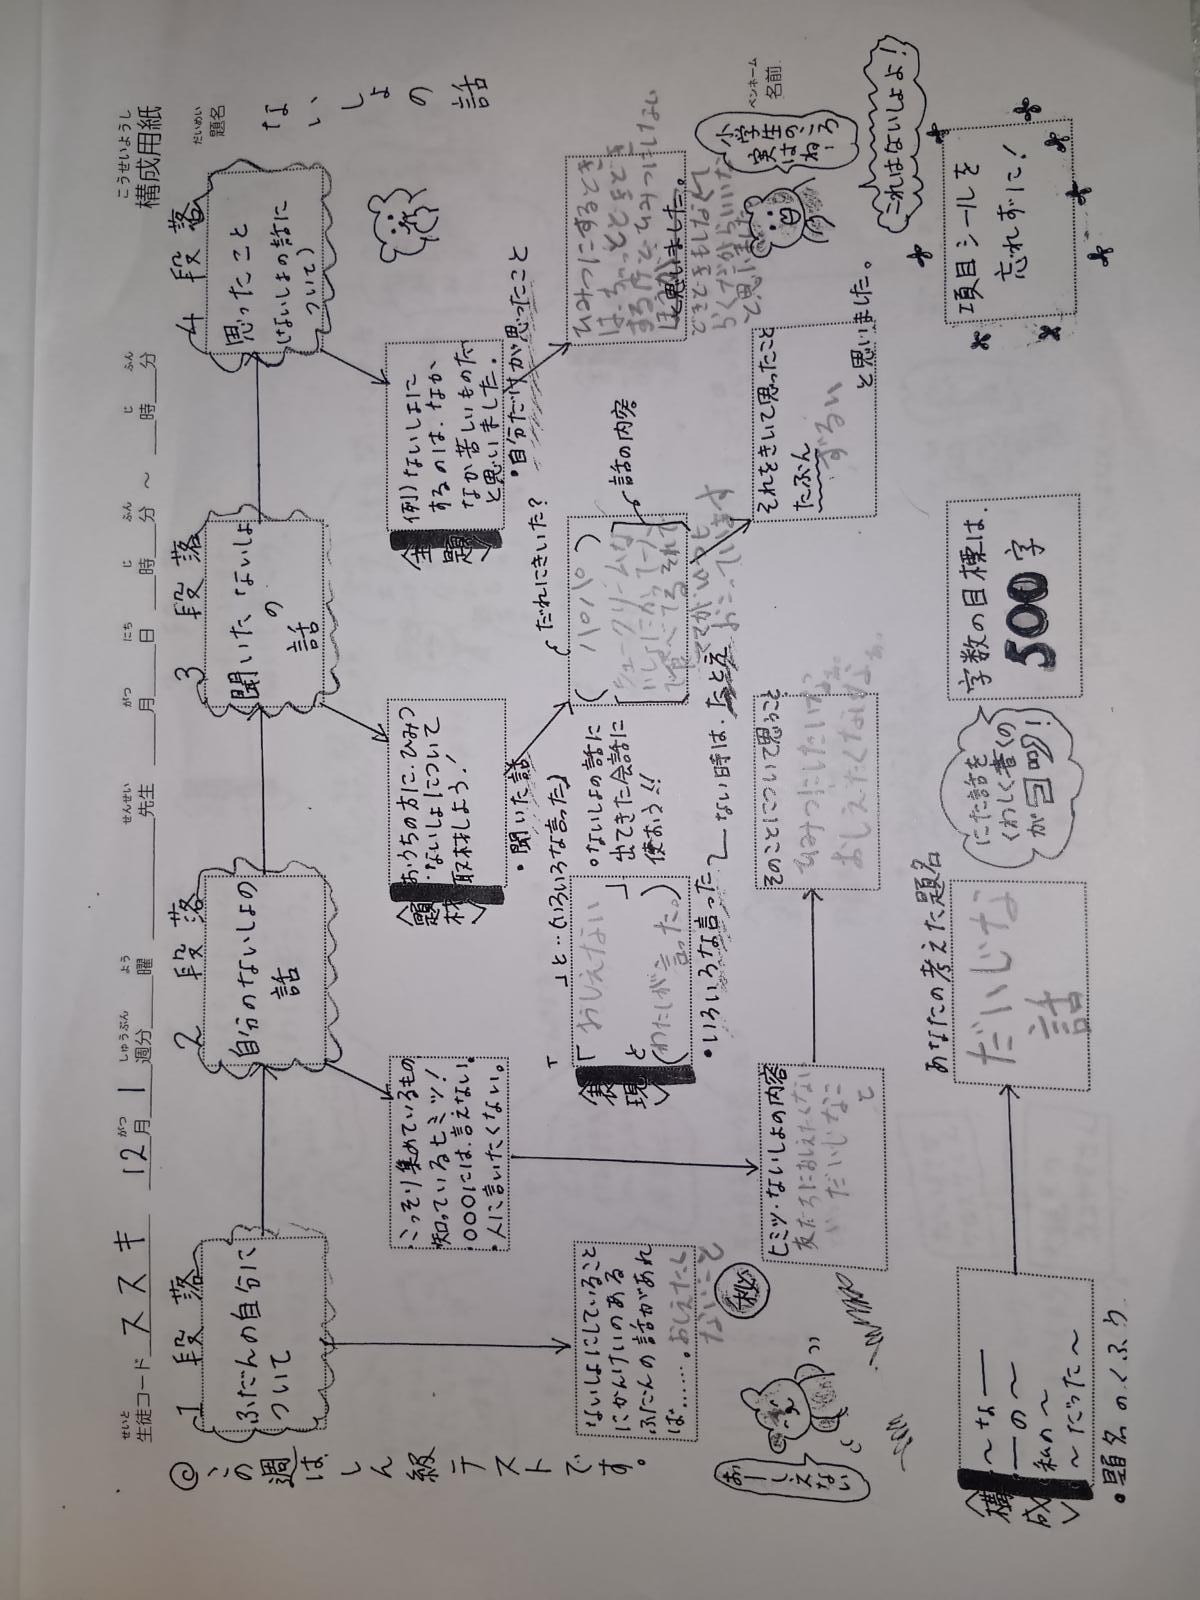 構成用紙
こうせいようし
生徒コード ススキ 12月 1週分 曜 先生 月 日 時 分 ～ 時 分
せいと がつ しゅうぶん よう せんせい がつ にち じ ふん じ ふん
題名
だいめい
ないしょの話
ペンネーム
名前
◎この週はしん級テストです。
1段落
ふだんの自分に
ついて
ないしょにしていること
にかんけいのある
ふだんの話があれ
ば……。おしえたく
ないこと
秘
おーしえない
2段落
自分のないしょの
話
・こっそり集めているもの
・知っているヒミツ!
・〇〇〇には、言えない。
・人に言いたくない。
ヒミツ・ないしょの内容
友だちにおしえたくない
だいじなこ
と
そのことについて思うこと
ひみつにしたいな。
おしえたくないなぁ。
「 」と…(いろいろな言った)
〈表現〉
「おしえない
」
と
(わたしが言った。)
・いろいろな言った
〜ない時は、たとえ
。ないしょの話に
出てきた会話に
使おう!!
3段落
聞いた ないしょ
の
話
〈題材〉
おうちの方に、ひみつ
・ないしょについて
取材しよう!
・聞いた話
だれにきいた?
(パパ)
シュークリームを
ないしょにかって一人
で食べてるそれで
ママがいつも
おこっています
話の内容
それをきいて思ったこと
たぶん
ずるい
と思いました。
4段落
思ったこと
(ないしょの話に
ついて)
〈主題〉
例)ないしょに
するのは、なか
なか苦しいものだ
と思いました。
・自分だけが思ったこと
ひみつにするとき
はちょっとどきどき
ひみつにしない
と思いました。
どきどきもしなくて
らくだからいいな
と思いました
小学生
実はの
はね!ころ
これはないしょよ!
〈構成〉
～な——
——の～
私の～
～だった～
・題名のくふう
あなたの考えた題名
だいじな
話
にた話を
くわしく書くの
が◎!
字数の目標は、
500字
項目シールを
忘れずに!